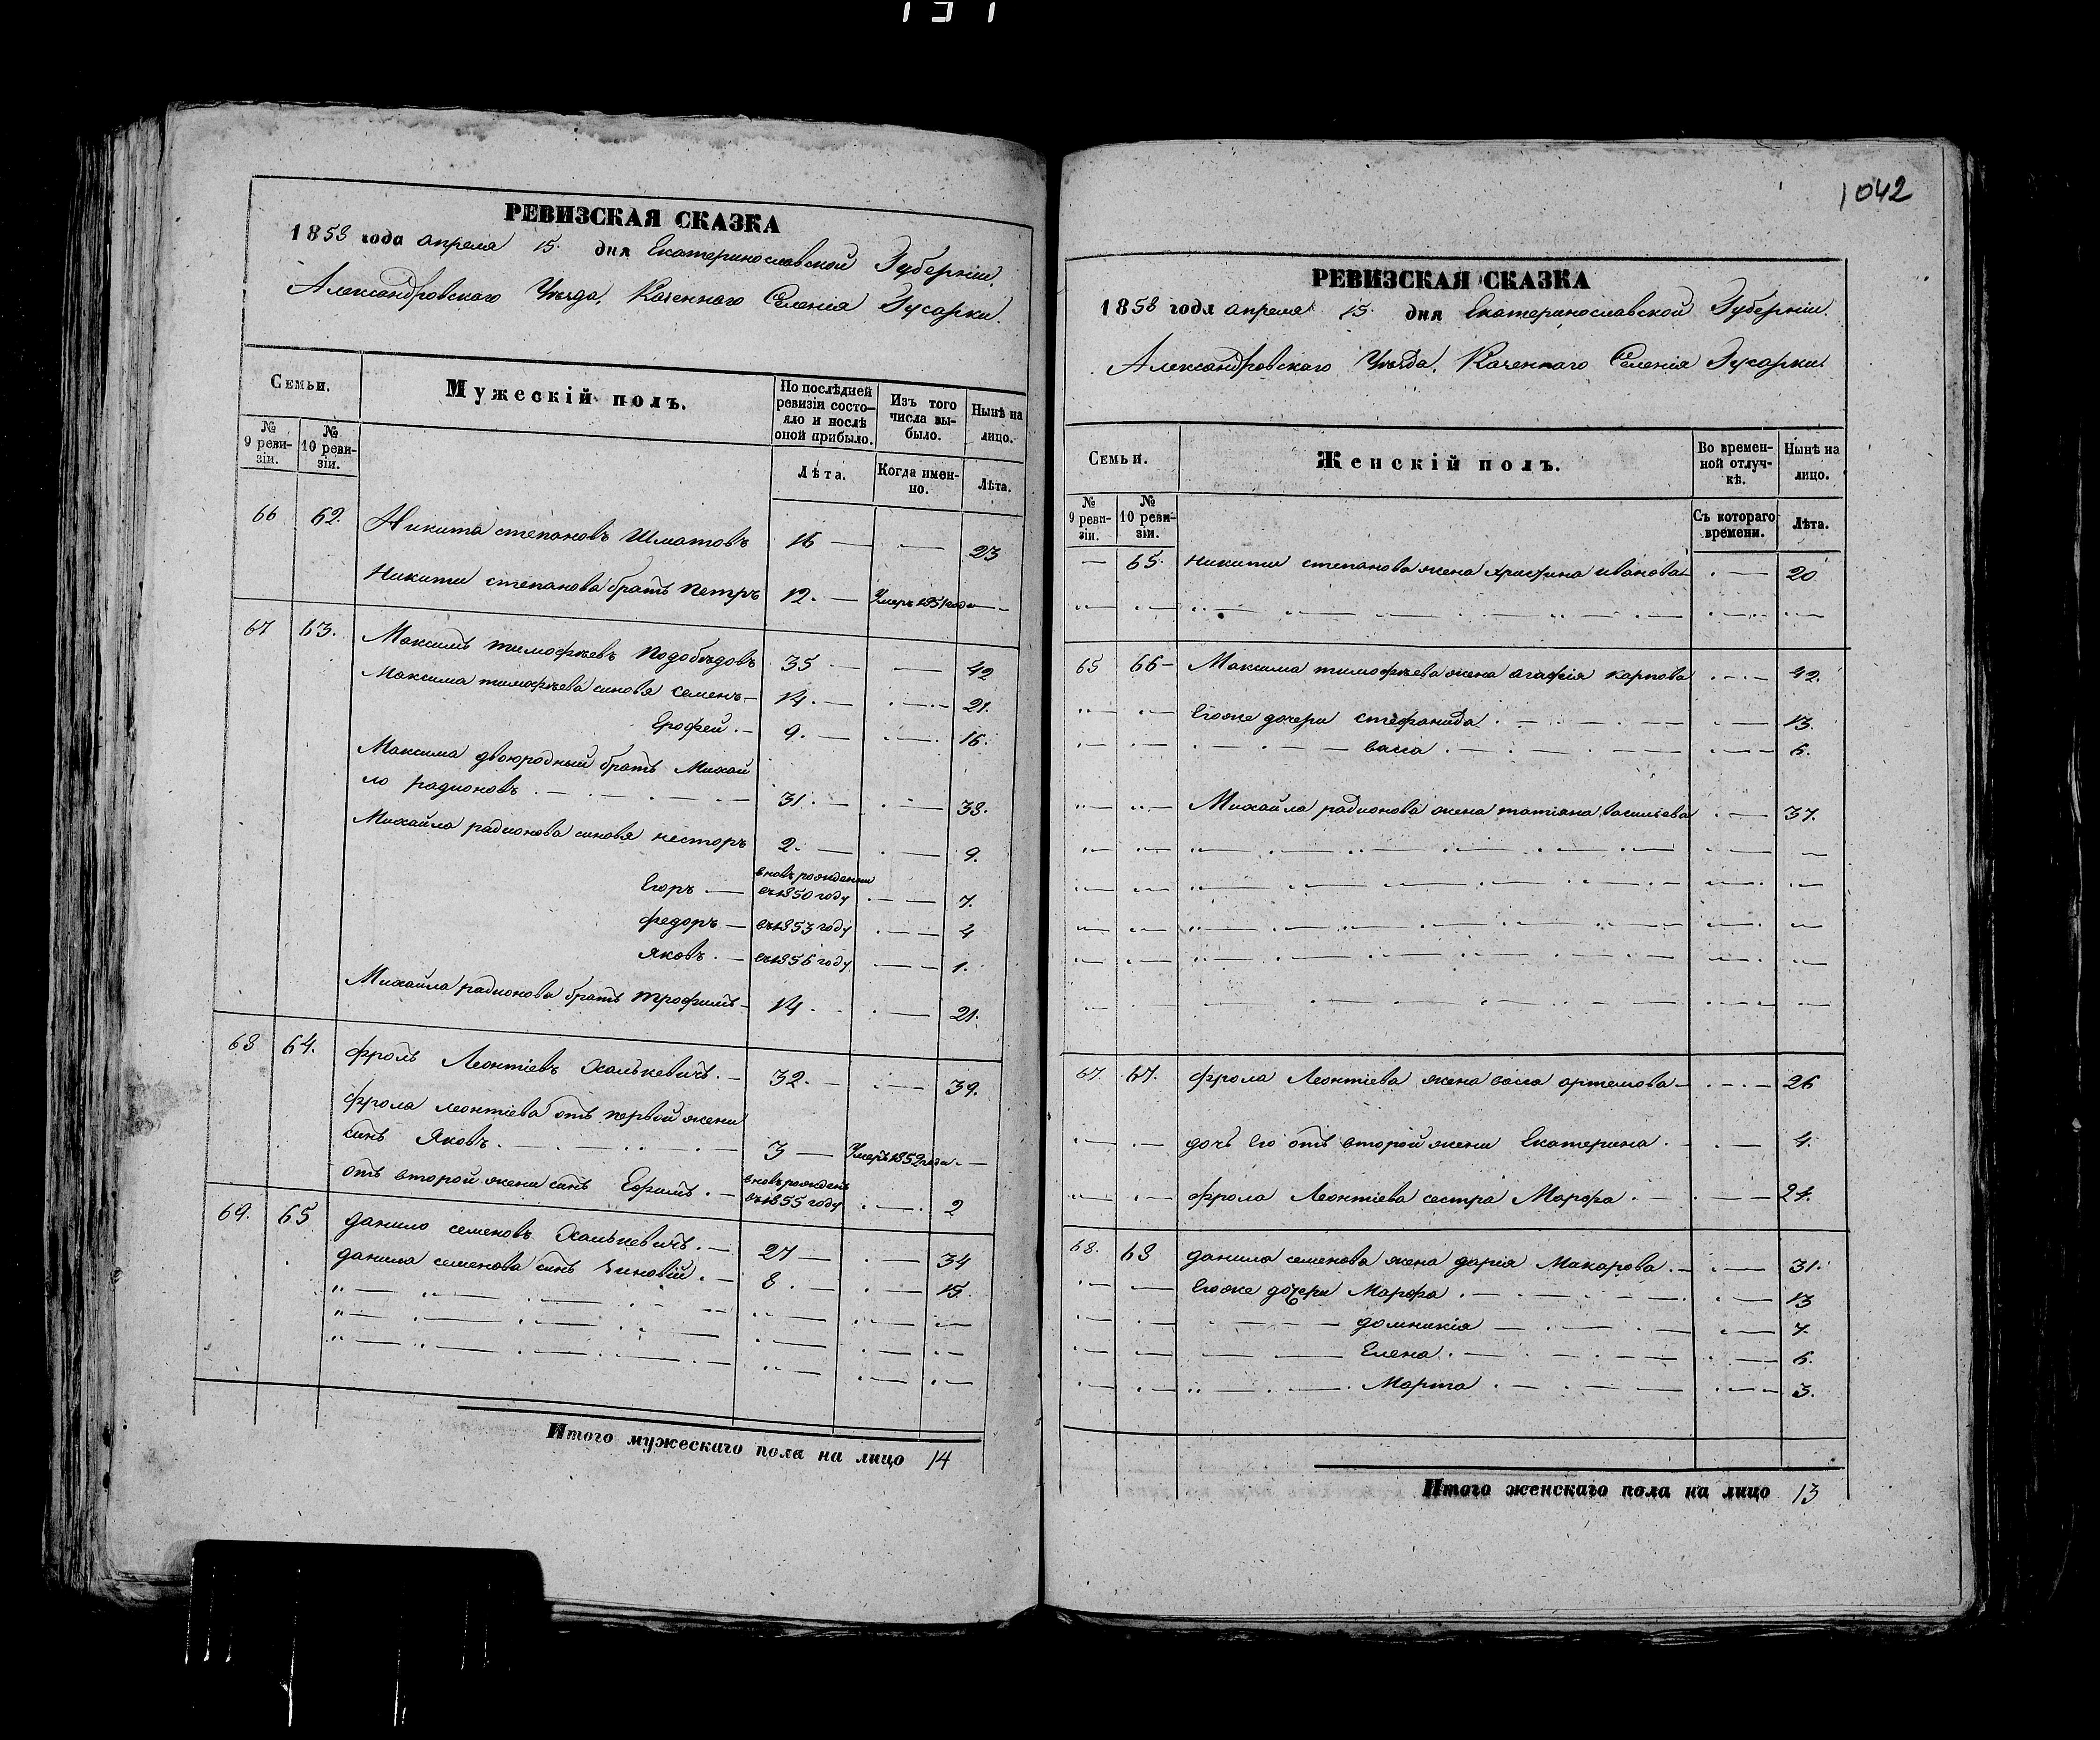 1042
РЕВИЗСКАЯ СКАЗКА
1858 года апреля 15. дня Екатеринославской Губерніи.
Александровскаго Уѣзда, Казеннаго Селенія Гусарки.
Семьи.
Мужескій полъ.
По послѣдней ревизіи состояло и послѣ оной прибыло.
Изъ того числа выбыло.
Нынѣ на лицо.
№ 9 ревизіи.
№ 10 ревизіи.
Лѣта.
Когда именно.
Лѣта.
66 62. Никита степановъ Шматовъ 16 — — 23
Никити степанова братъ петръ 12. — Умеръ 1851 года —
67 63. Максимъ тимофѣевъ Подобѣдовъ 35 — — 42
Максима тимофѣева синовя семенъ — 14. — — 21.
Ерофей. — 9. — — 16.
Максима двоюродный братъ Михай
ло радионовъ. — 31. — — 38.
Михайла радионова синовя несторъ 2. — — 9.
Егоръ — вновь рожденни въ 1850 году — 7.
федоръ — въ 1853 году — 4
яковъ. — въ 1856 году — 1.
Михайла радионова братъ трофимъ — 14. — 21.
68 64. фролъ Леонтіевъ Халькевичъ. — 32. — — 39.
фрола леонтіева отъ первой жени
синъ яковъ. — 3 — Умеръ 1852 года. —
отъ второй жени синъ Ефимъ. — вновь рожденъ въ 1855 году — 2
69. 65 данило семеновъ Халькевичъ. — 27 — — 34
данила семенова синъ зиновій. — 8. — — 15.
Итого мужескаго пола на лицо 14
РЕВИЗСКАЯ СКАЗКА
1858 года апреля 15. дня Екатеринославской Губерніи.
Александровскаго Уѣзда, Казеннаго Селенія Гусарки
Семьи.
Женскій полъ.
Во временной отлучкѣ.
Нынѣ на лицо.
№ 9 ревизіи.
№ 10 ревизіи.
Съ котораго времени.
Лѣта.
— 65. никити степанова жена христина иванова — 20
65 66 — Максима тимофѣева жена агафія карпова — 42.
Егоже дочери стефанида. — 13.
васса. — 6.
Михайла радионова жена татіяна васильева — 37.
67. 67. фрола Леонтіева жена васса артемова — 26
дочь его отъ второй жени Екатерина. — 4.
фрола Леонтіева сестра Марфа. — 24.
68. 68 данила семенова жена дарія Макарова. — 31.
Егоже дочери Марфа. — 13
домникія — 7.
Елена. — 6.
Марта. — 3.
Итого женскаго пола на лицо 13